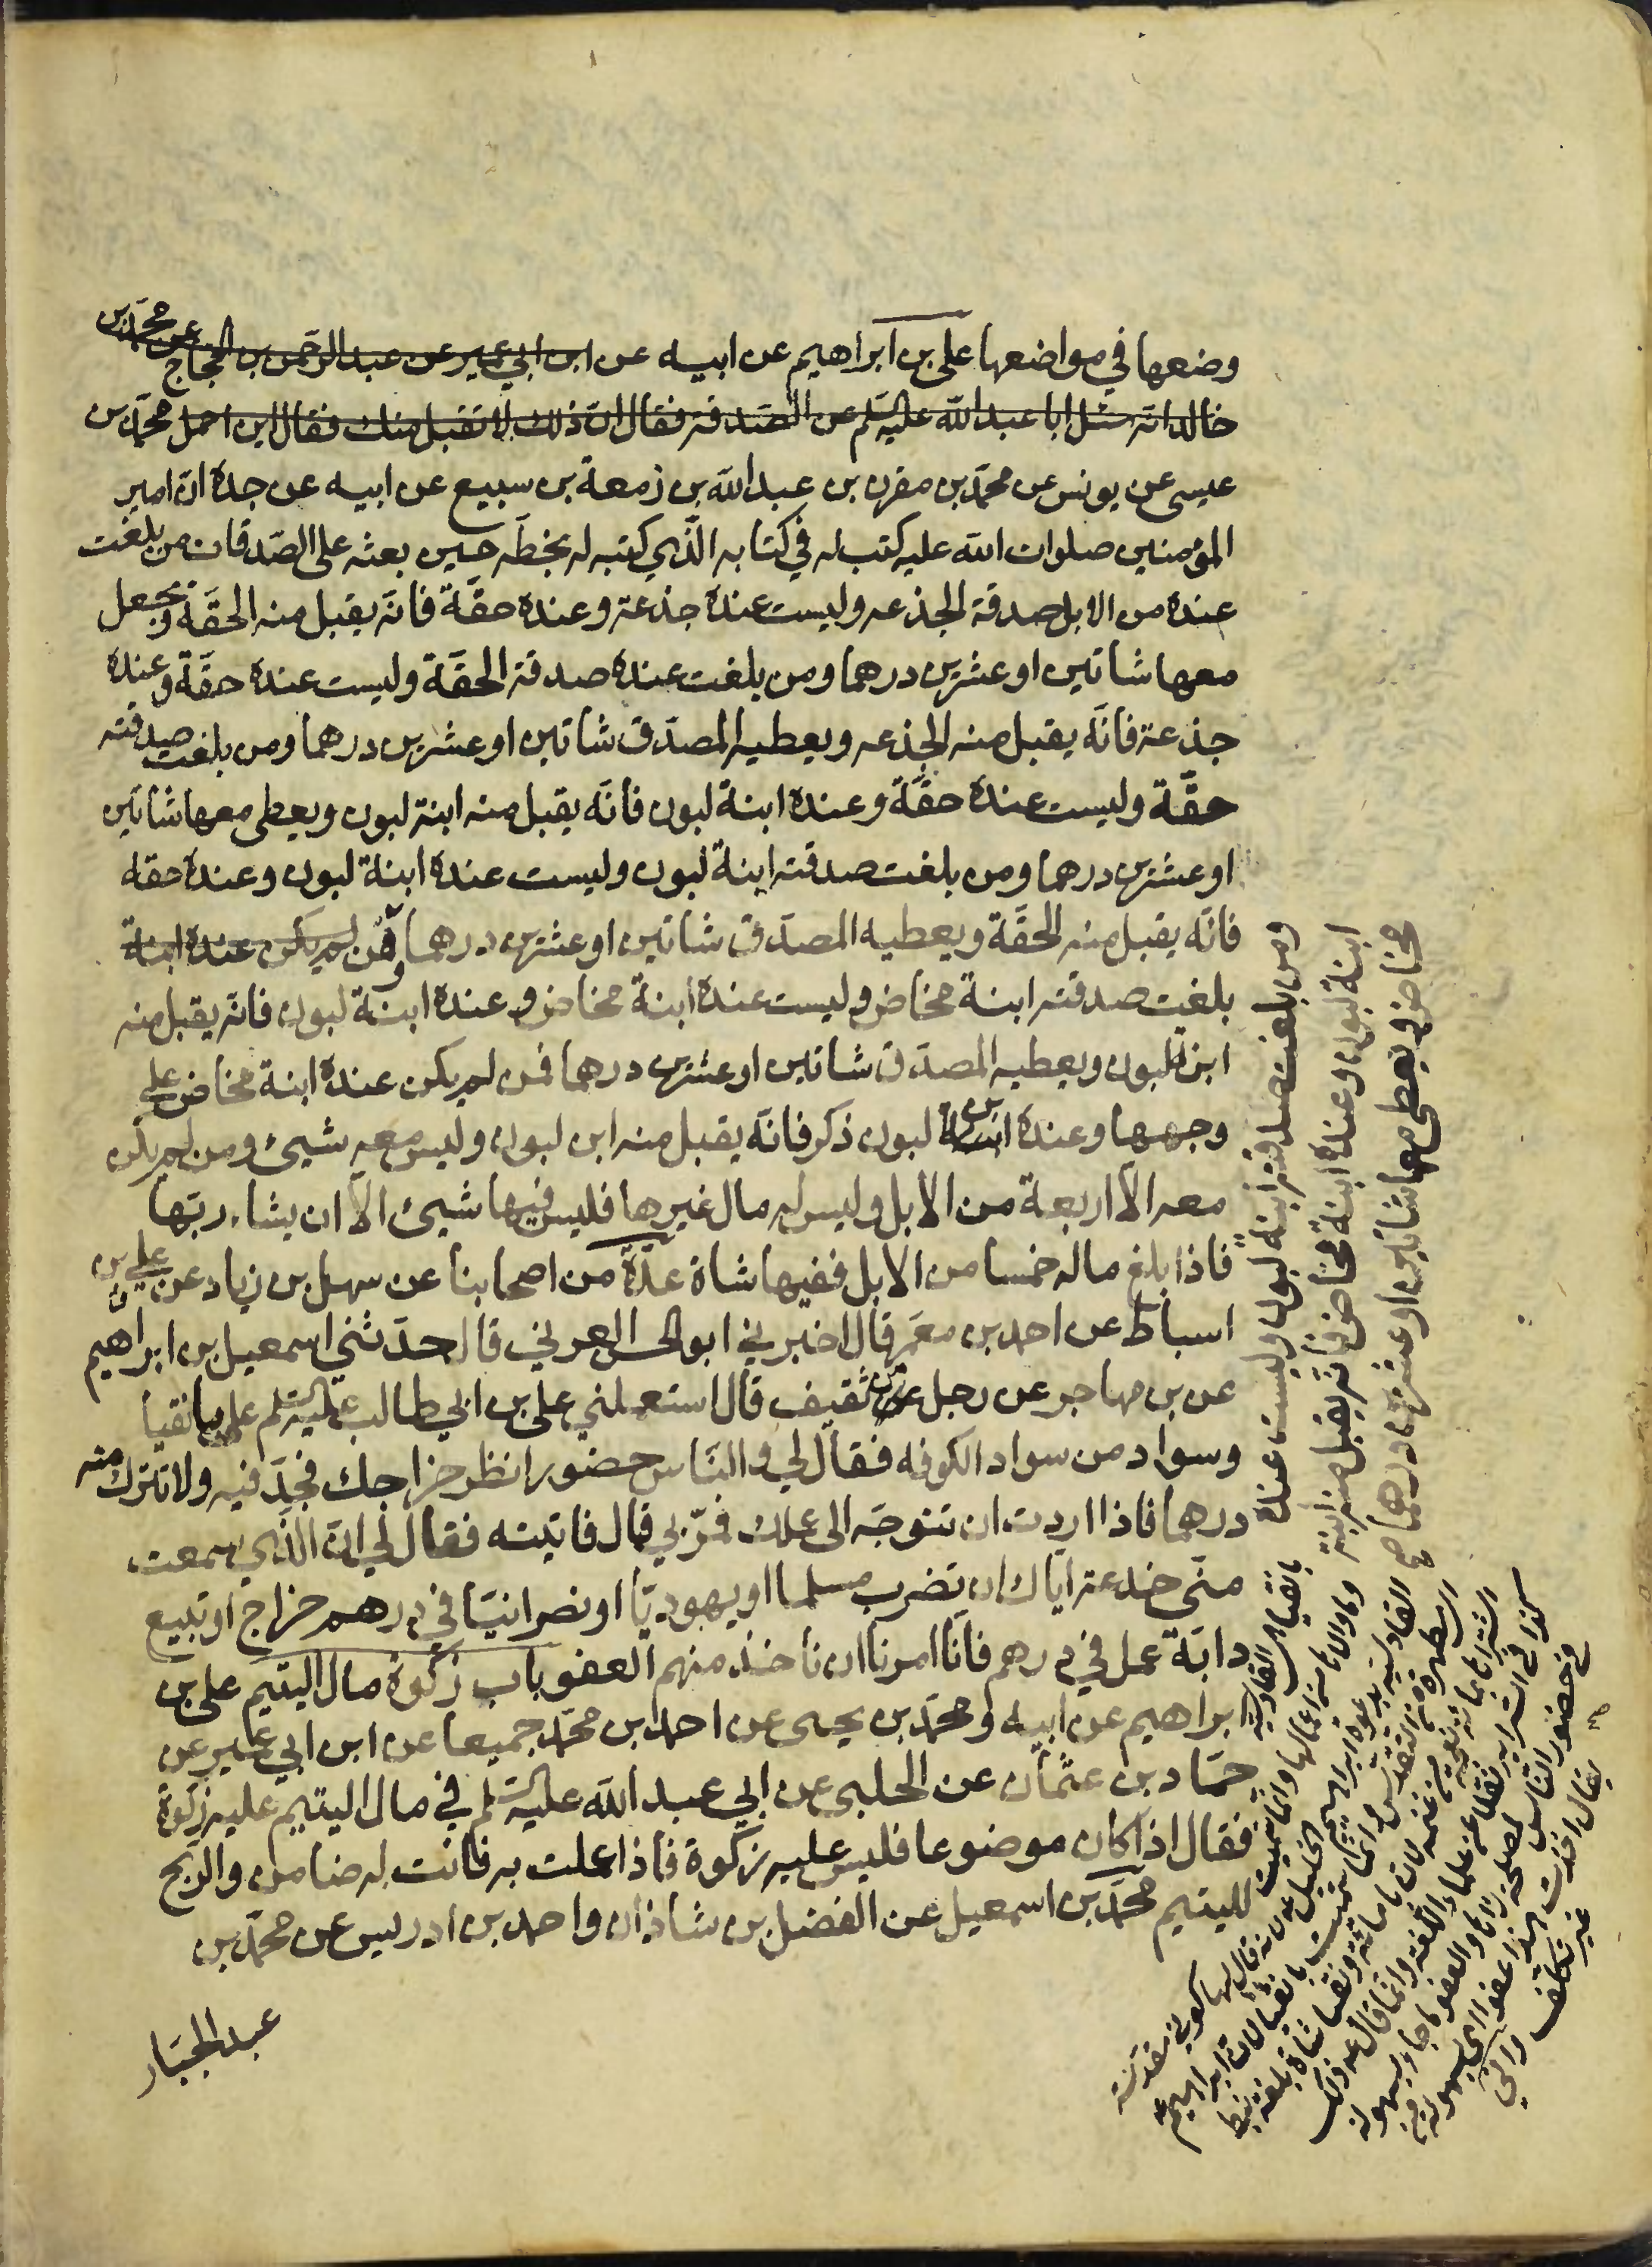 وضعها في مواضعها علي بن ابراهيم عن ابيه عن ابن ابي عمير عن عبد الرحمن بن الحجاج عن محمد بن
خالد انه سئل ابا عبد الله عليه السلم عن الصدقة فقال ان ذلك لا تقبل منك فقال اني احمل محمد بن
عيسى عن يونس عن محمد بن مقرن بن عبد الله بن زمعة بن سبيع عن ابيه عن جده ان امير
المؤمنين صلوات الله عليه كتب له في كتابه الذي كتبه له بخطه حين بعثه على الصدقات من بلغت
عنده من الابل صدقة الجذعه وليست عنده جذعة وعنده حقة فانه يقبل منه الحقة ويجعل
معها شاتين او عشرين درهما ومن بلغت عنده صدقة الحقة وليست عنده حقة وعنده
جذعة فانه يقبل منه الجذعه ويعطيه المصدق شاتين او عشرين درهما ومن بلغت صدقته
حقة وليست عنده حقة وعنده ابنة لبون فانه يقبل منه ابنة لبون ويعطى معها شاتين
او عشرين درهما ومن بلغت صدقته ابنة لبون وليست عنده ابنة لبون وعنده حقه
فانه يقبل منه الحقة ويعطيه المصدق شاتين او عشرين درهما ومن لم يكن عنده ابنة
بلغت صدقته ابنة مخاض وليست عنده ابنة مخاض وعنده ابنة لبون فانه يقبل منه
ابنة لبون ويعطيه المصدق شاتين او عشرين درهما فمن لم يكن عنده ابنة مخاض على
وجهها وعنده ابن لبون ذكر فانه يقبل منه ابن لبون وليس معه شيئ ومن لم يكن
معه الا اربعة من الابل وليس له مال غيرها فليس فيها شيئ الا ان يشاء ربها
فاذا بلغ ماله خمسا من الابل ففيها شاة عدة من اصحابنا عن سهل بن زياد عن علي بن
اسباط عن احمد بن معمر قال اخبرني ابو الحسن العرني قال حدثني اسمعيل بن ابراهيم
عن بن مهاجر عن رجل من ثقيف قال استعملني علي بن ابي طالب عليه السلم على بانقيا
وسواد من سواد الكوفه فقال لي والناس حضور انظر خراجك فجد فيه ولا تترك منه
درهما فاذا اردت ان تتوجه الى عملك فمر بي قال فاتيته فقال لي ان الذي سمعت
مني خدعة اياك ان تضرب مسلما او يهوديا او نصرانيا في درهم خراج او تبيع
دابة عمل في درهم فانا امرنا ان ناخذ منهم العفو باب زكوة مال اليتيم علي بن
ابراهيم عن ابيه ومحمد بن يحيى عن احمد بن محمد جميعا عن ابن ابي عمير عن
حماد بن عثمان عن الحلبي عن ابي عبد الله عليه السلم في مال اليتيم عليه زكوة
فقال اذا كان موضوعا فليس عليه زكوة فاذا عملت به فانت له ضامن والربح
لليتيم محمد بن اسمعيل عن الفضل بن شاذان واحمد بن ادريس عن محمد بن
عبد الجبار
ومن بلغت صدقته ابنة لبون وليست عنده
ابنة لبون وعنده ابنة مخاض فانه يقبل منه ابنة
مخاض ويعطي معها شاتين او عشرين درهما صح
بانقيا القادسية وما والاها من اعمالها وانما سميت
القادسية بدعوة ابراهيم الخليل ع لانه قال لها كوني مقدسة